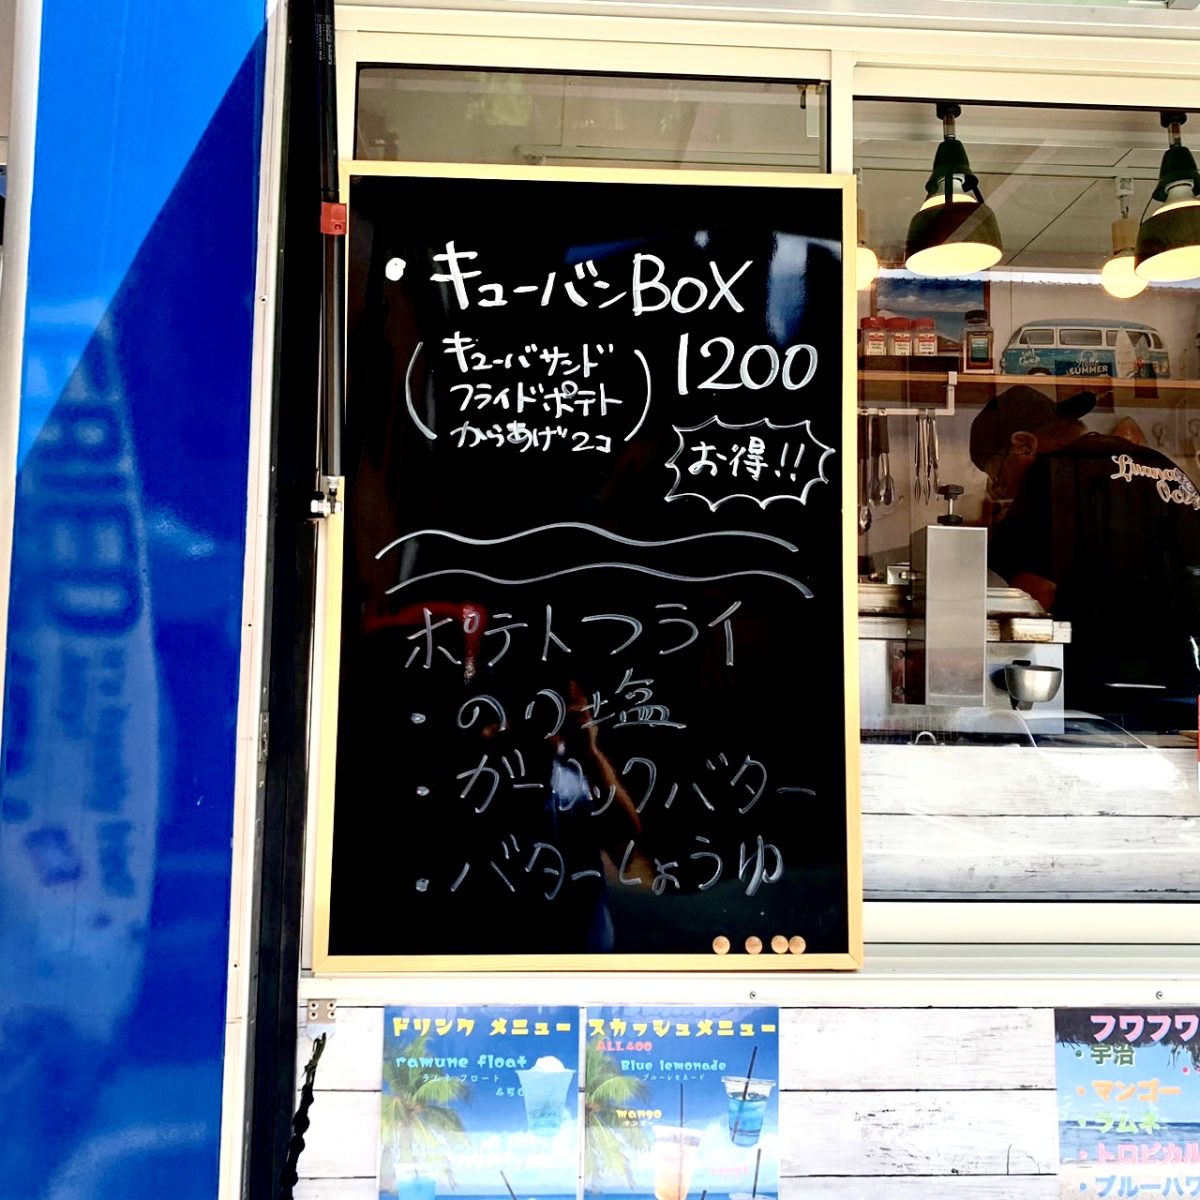 ・キューバンBOX
(キューバサンド
フライドポテト
からあげ2コ)
1200
お得!!
ポテトフライ
・のり塩
・ガーリックバター
・バターしょうゆ
ドリンク メニュー
ramune float
ラムネフロート
450
スカッシュメニュー
ALL400
Blue lemonade
ブルーレモネード
mango
マンゴー
フワフワ
・宇治
・マンゴー
・ラムネ
・トロピカル
・ブルーハワ
SUMMER